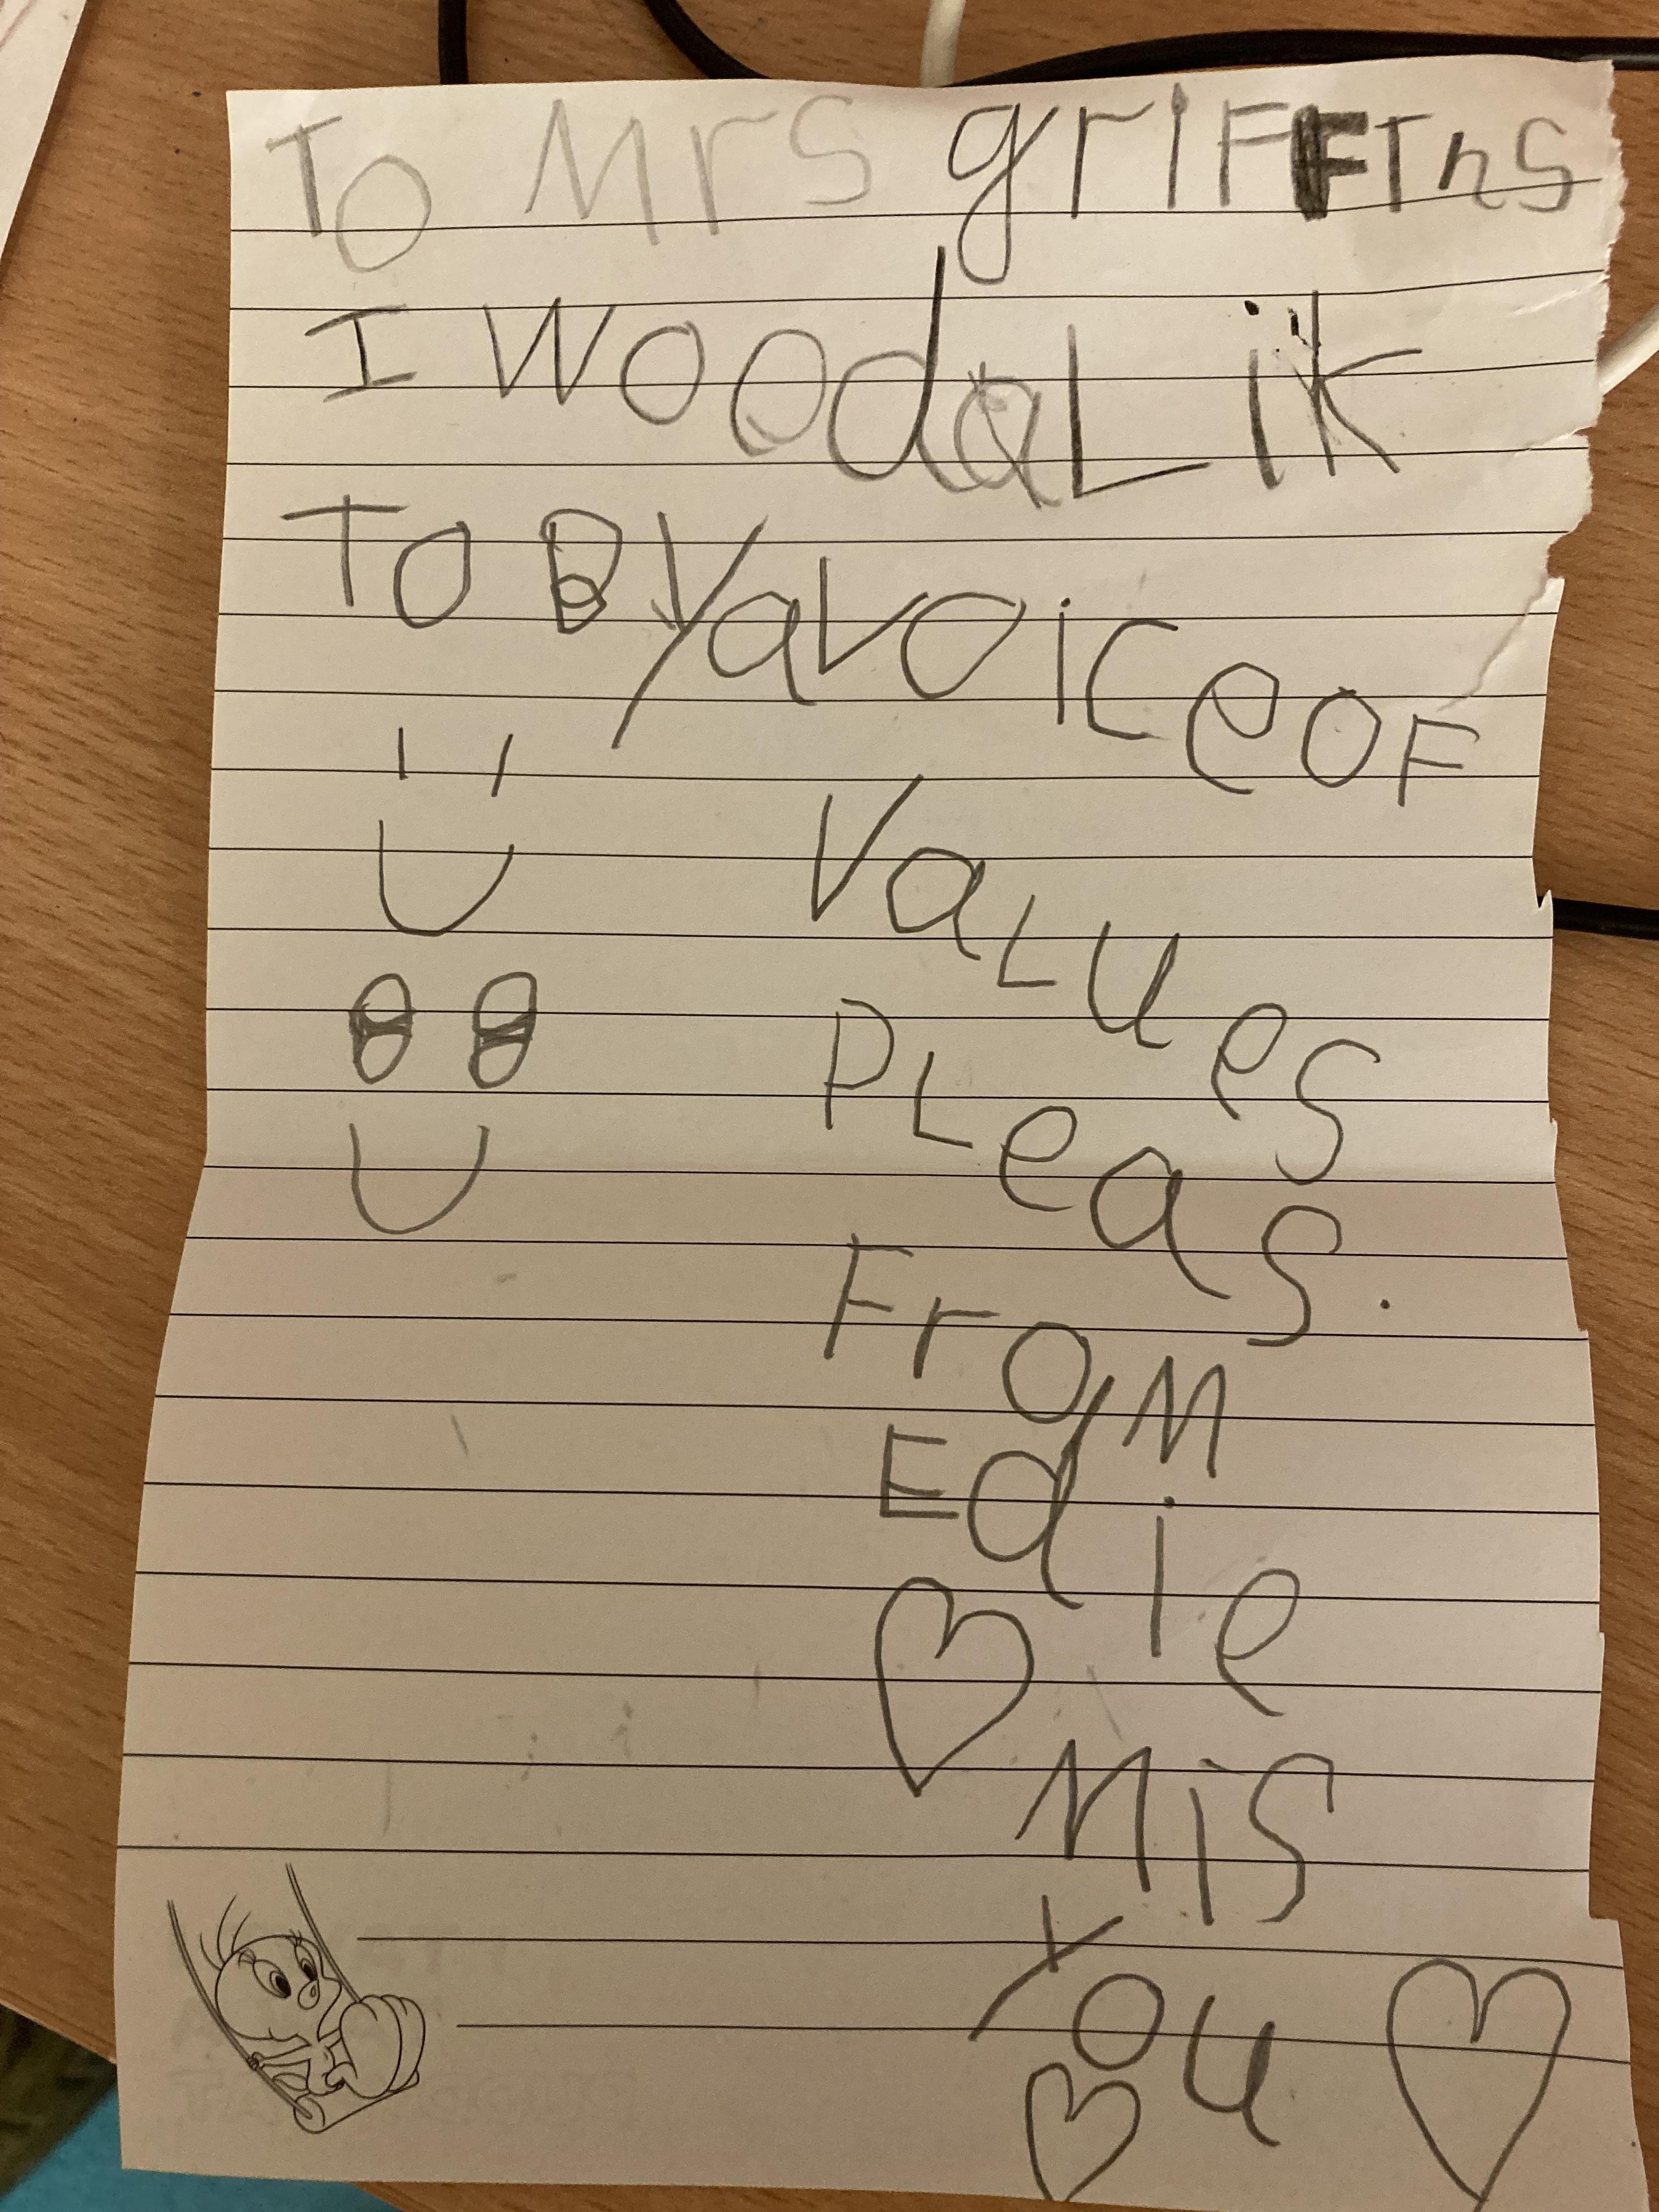 To Mrs griFFTnS
I Wood a Lik
To By a voice oF
Values
PLeas.
From
Edie
Mis
You